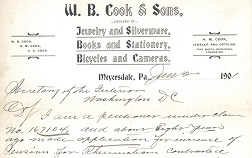 W. B. Cook & Sons,
DEALERS IN
Jewelry and Silverware,
Books and Stationery,
Bicycles and Cameras.
W. B. COOK,
H. M. COOK,
C. C. COOK.
H. M. COOK,
JEWELER AND OPTICIAN.
Meyersdale, Pa., 190
Secretary of the Interior
Washington DC
I am a pensioner under claim
No 163104 and about Eight years
ago made application for increase of
Pension for Rheumatism contracted